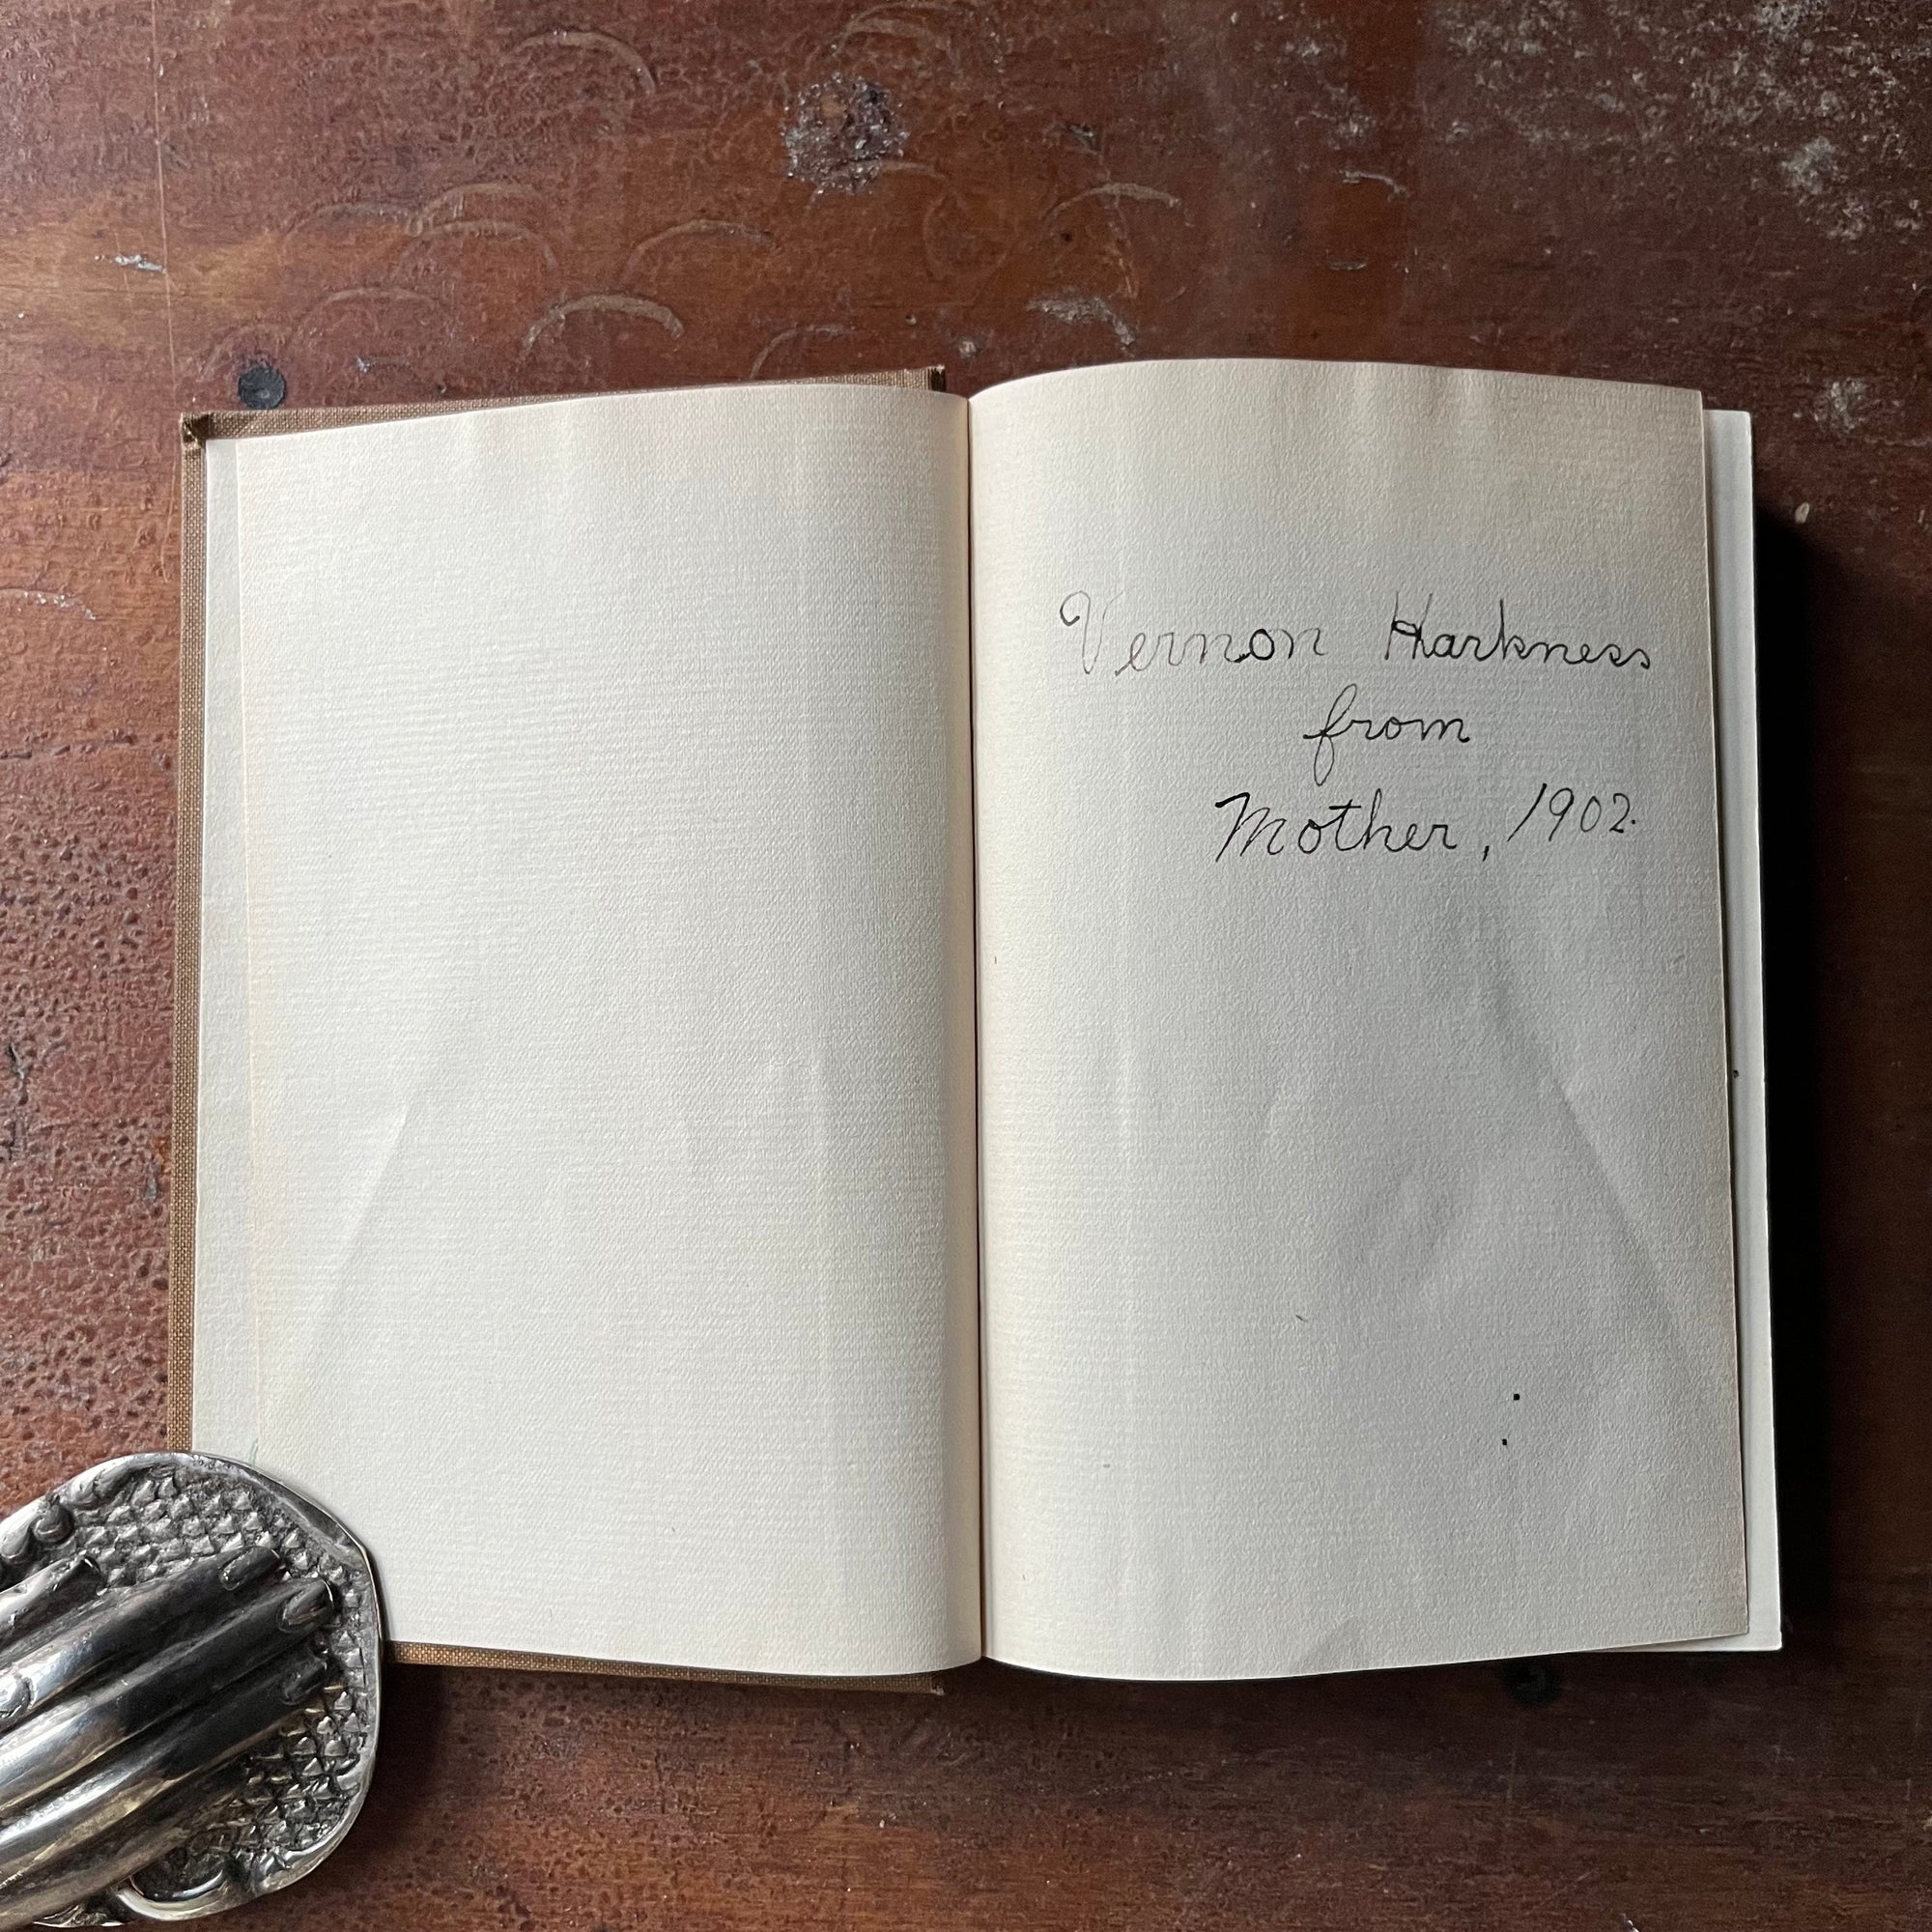 Vernon Harkness
from
Mother, 1902.